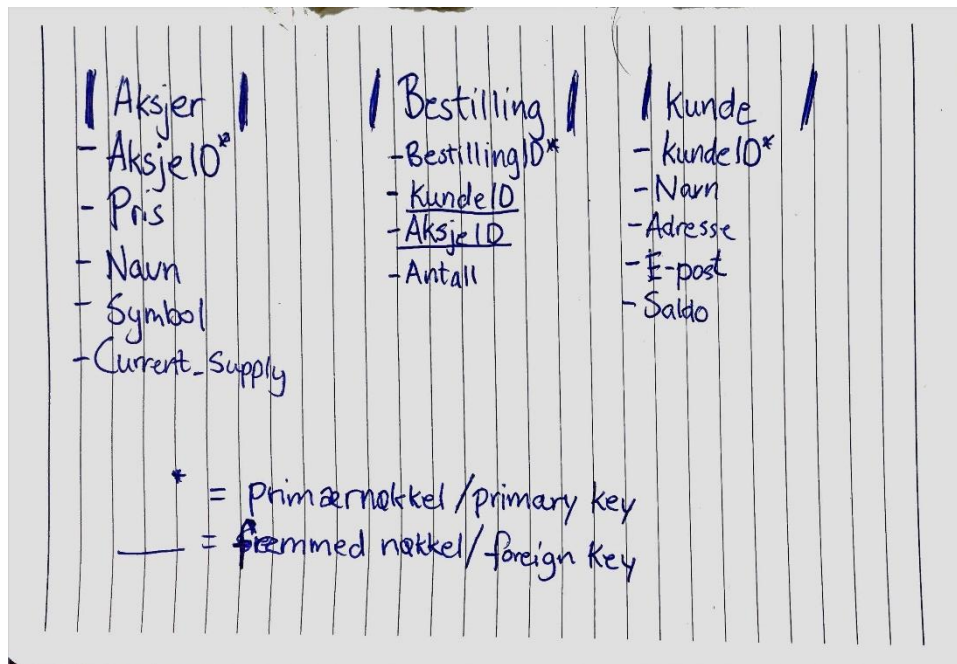 Aksjer
- AksjeID*
- Pris
- Navn
- Symbol
- Current_Supply
Bestilling
- BestillingID*
- KundeID
- AksjeID
- Antall
Kunde
- KundeID*
- Navn
- Adresse
- E-post
- Saldo
* = Primærnøkkel/primary key
___ = fremmed nøkkel/foreign key